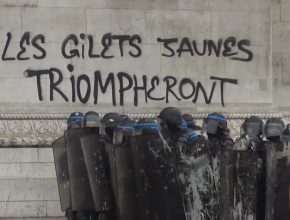 LES GILETS JAUNES
TRIOMPHERONT